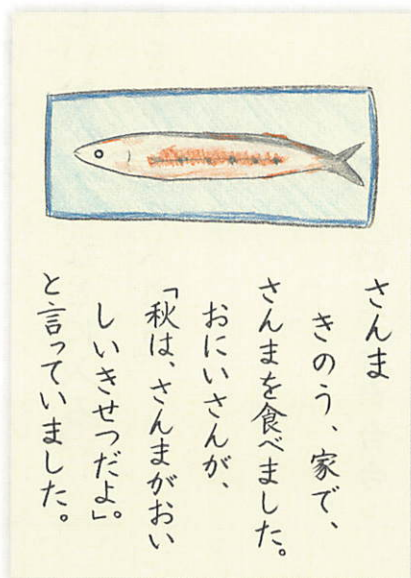 さんま
きのう、家で、
さんまを食べました。
おにいさんが、
「秋は、さんまがおい
しいきせつだよ」。
と言っていました。